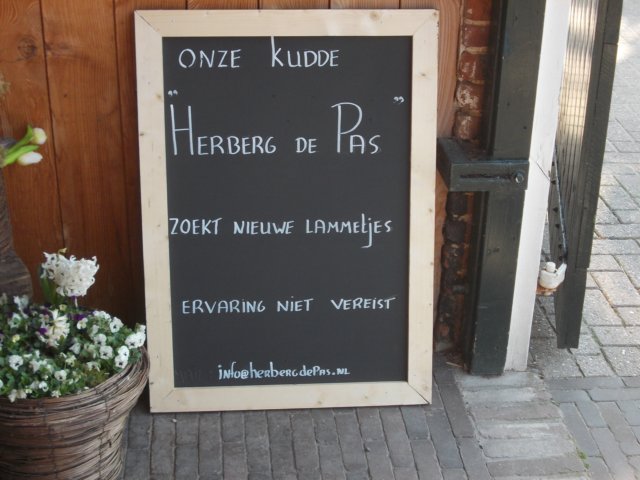 ONZE KUDDE
"HERBERG DE PAS"
ZOEKT NIEUWE LAMMETJES
ERVARING NIET VEREIST
info@herbergdePas.NL